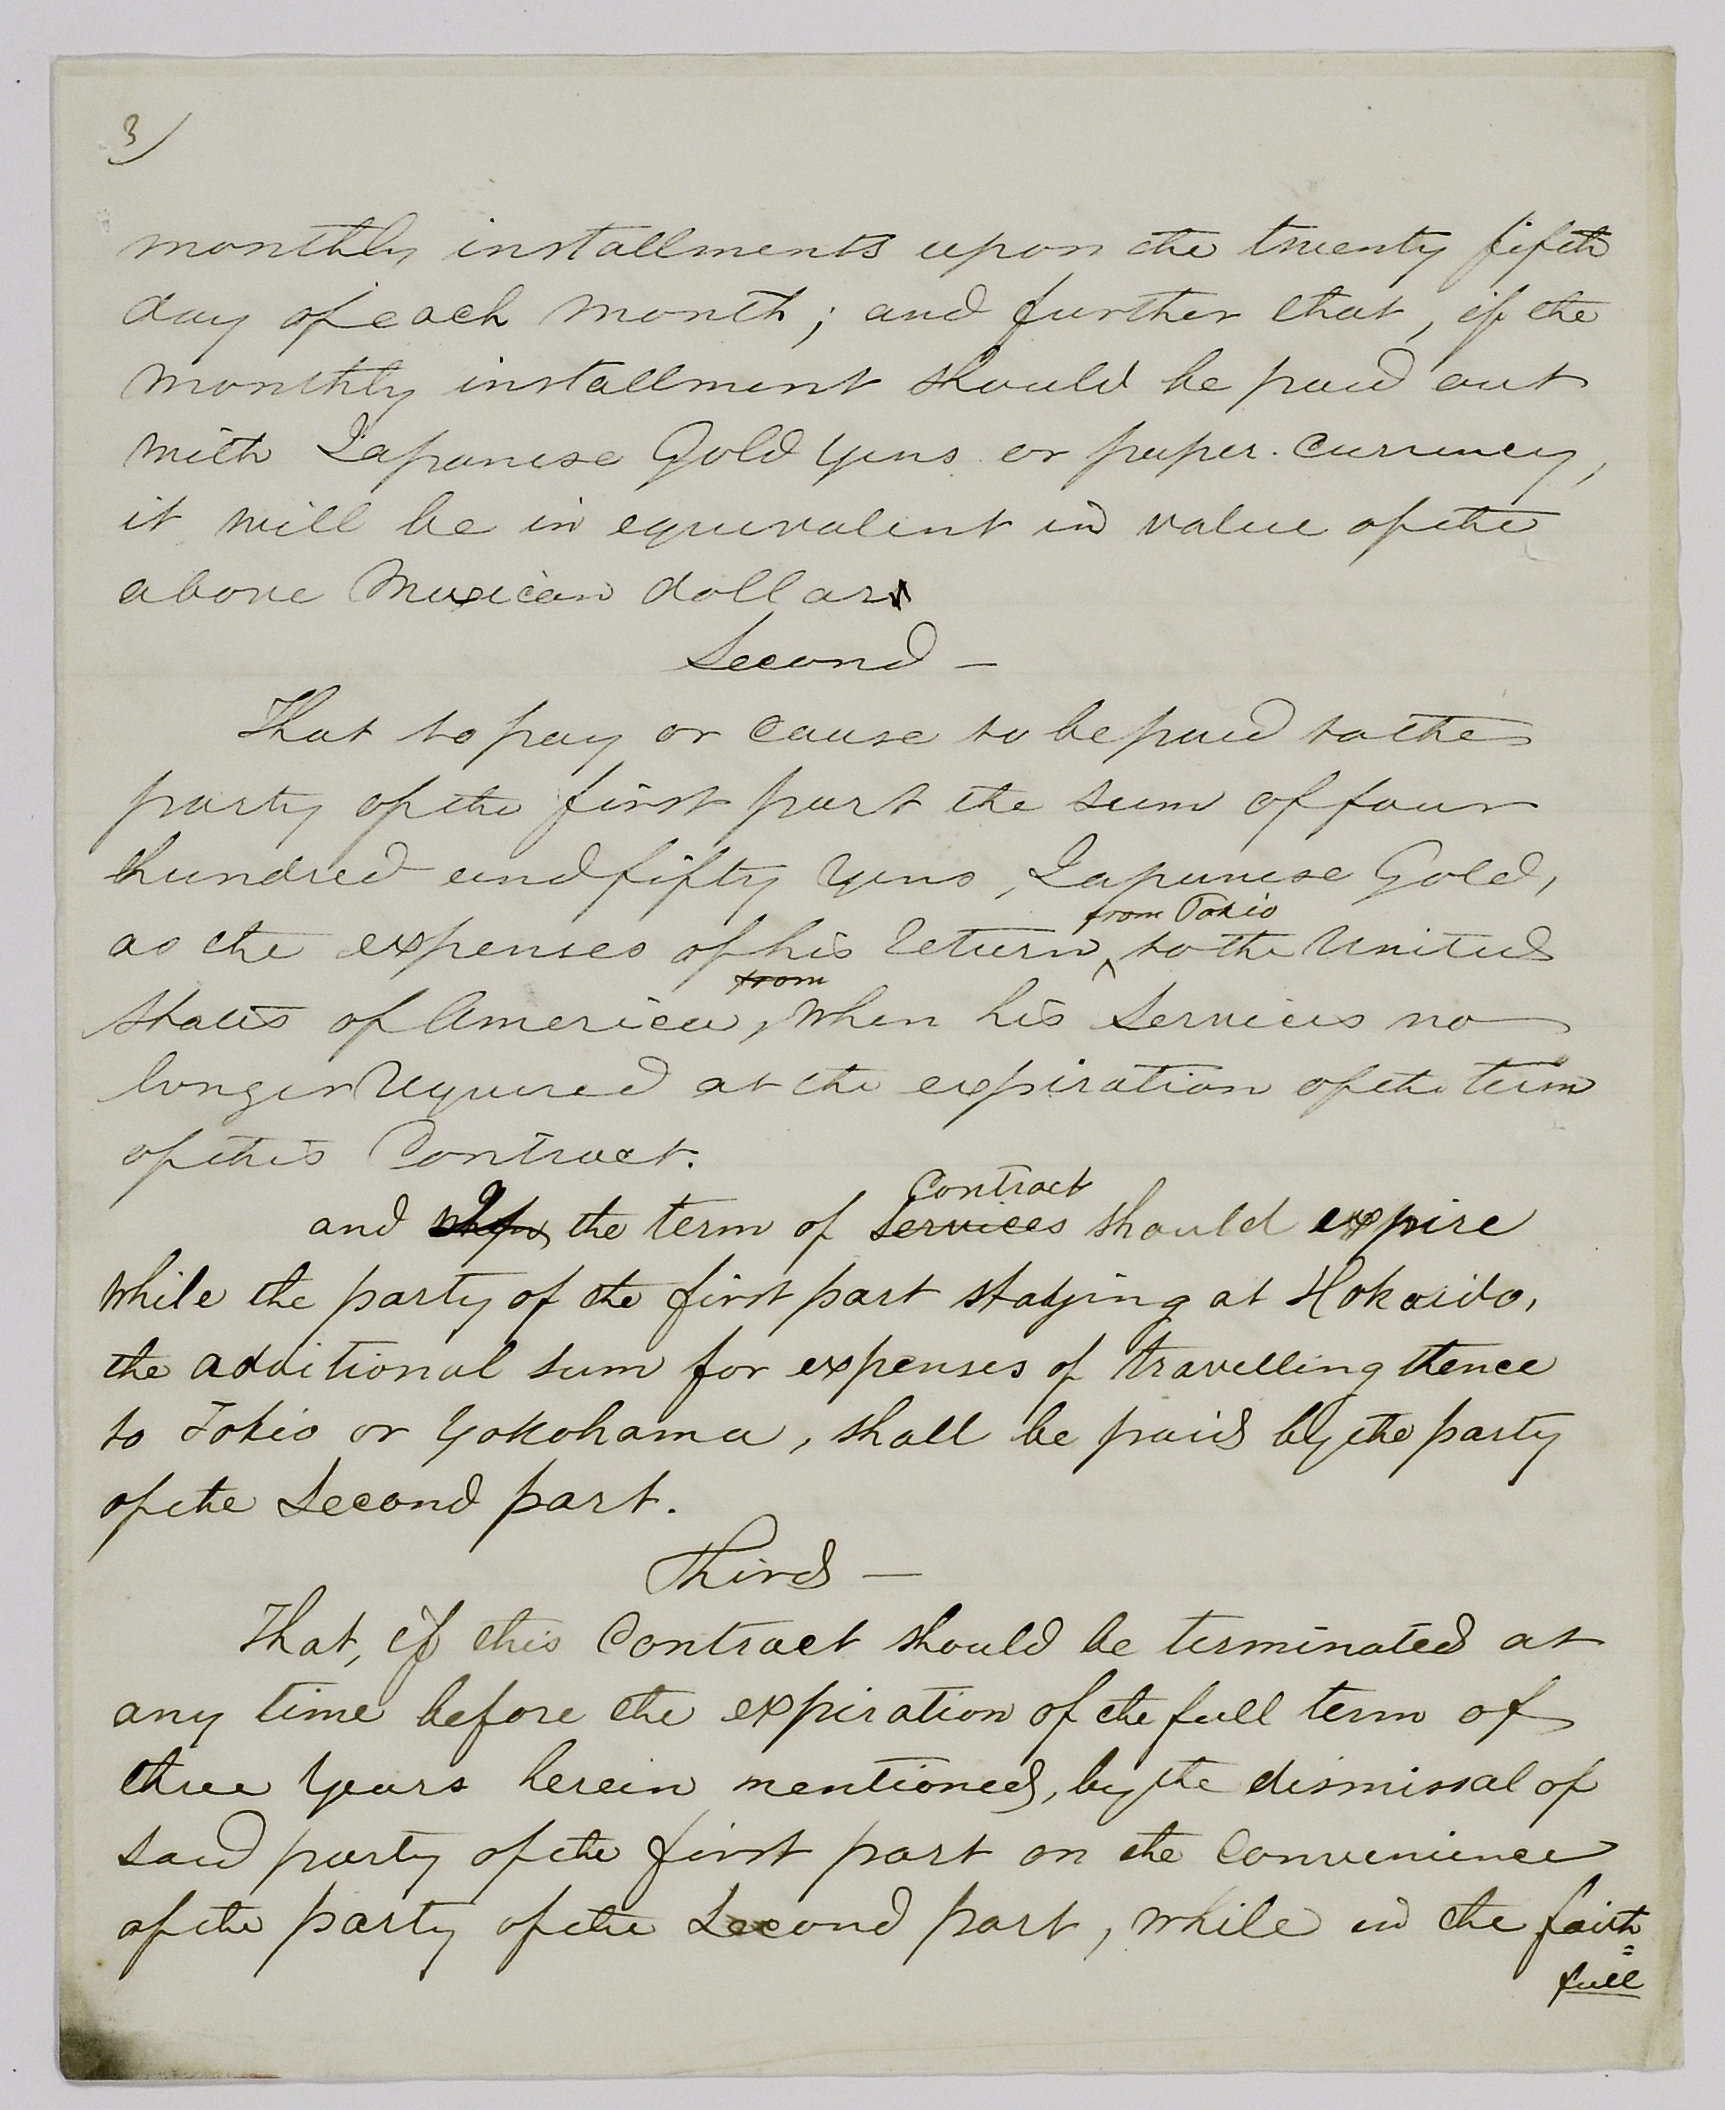 3)
monthly installments upon the twenty fifth
day of each month; and further that, if the
monthly installment should be paid out
with Japanese Gold yens or paper currency,
it will be in equivalent in value of the
above Mexican dollars
Second —
That to pay or cause to be paid to the
party of the first part the sum of four
hundred and fifty yens, Japanese Gold,
from Tokio
as the expenses of his return to the United
from
States of America, when his services no
longer required at the expiration of the term
of this Contract.
Contract
and If the term of Services should expire
while the party of the first part staying at Hokaido,
the additional sum for expenses of travelling thence
to Tokio or Yokohama, shall be paid by the party
of the Second part.
Third —
That, if this Contract should be terminated at
any time before the expiration of the full term of
three years herein mentioned, by the dismissal of
said party of the first part on the convenience
of the party of the Second part, while in the faith=
full